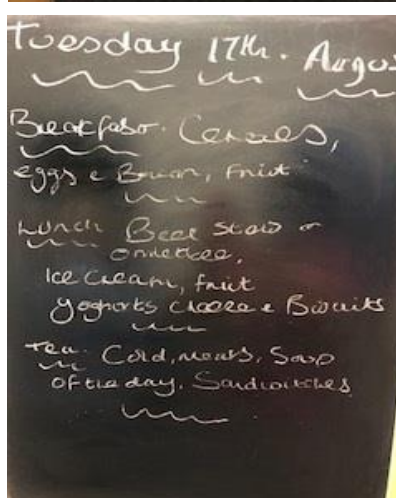 Tuesday 17th. Augus
Breakfast. Cereals,
eggs & Bacon, Fruit
Lunch Beef Stew or
omelette,
Ice Cream, fruit
Yoghorts cheese & Biscuits
Tea. Cold, meats, Soup
Of the day, Sandwitches